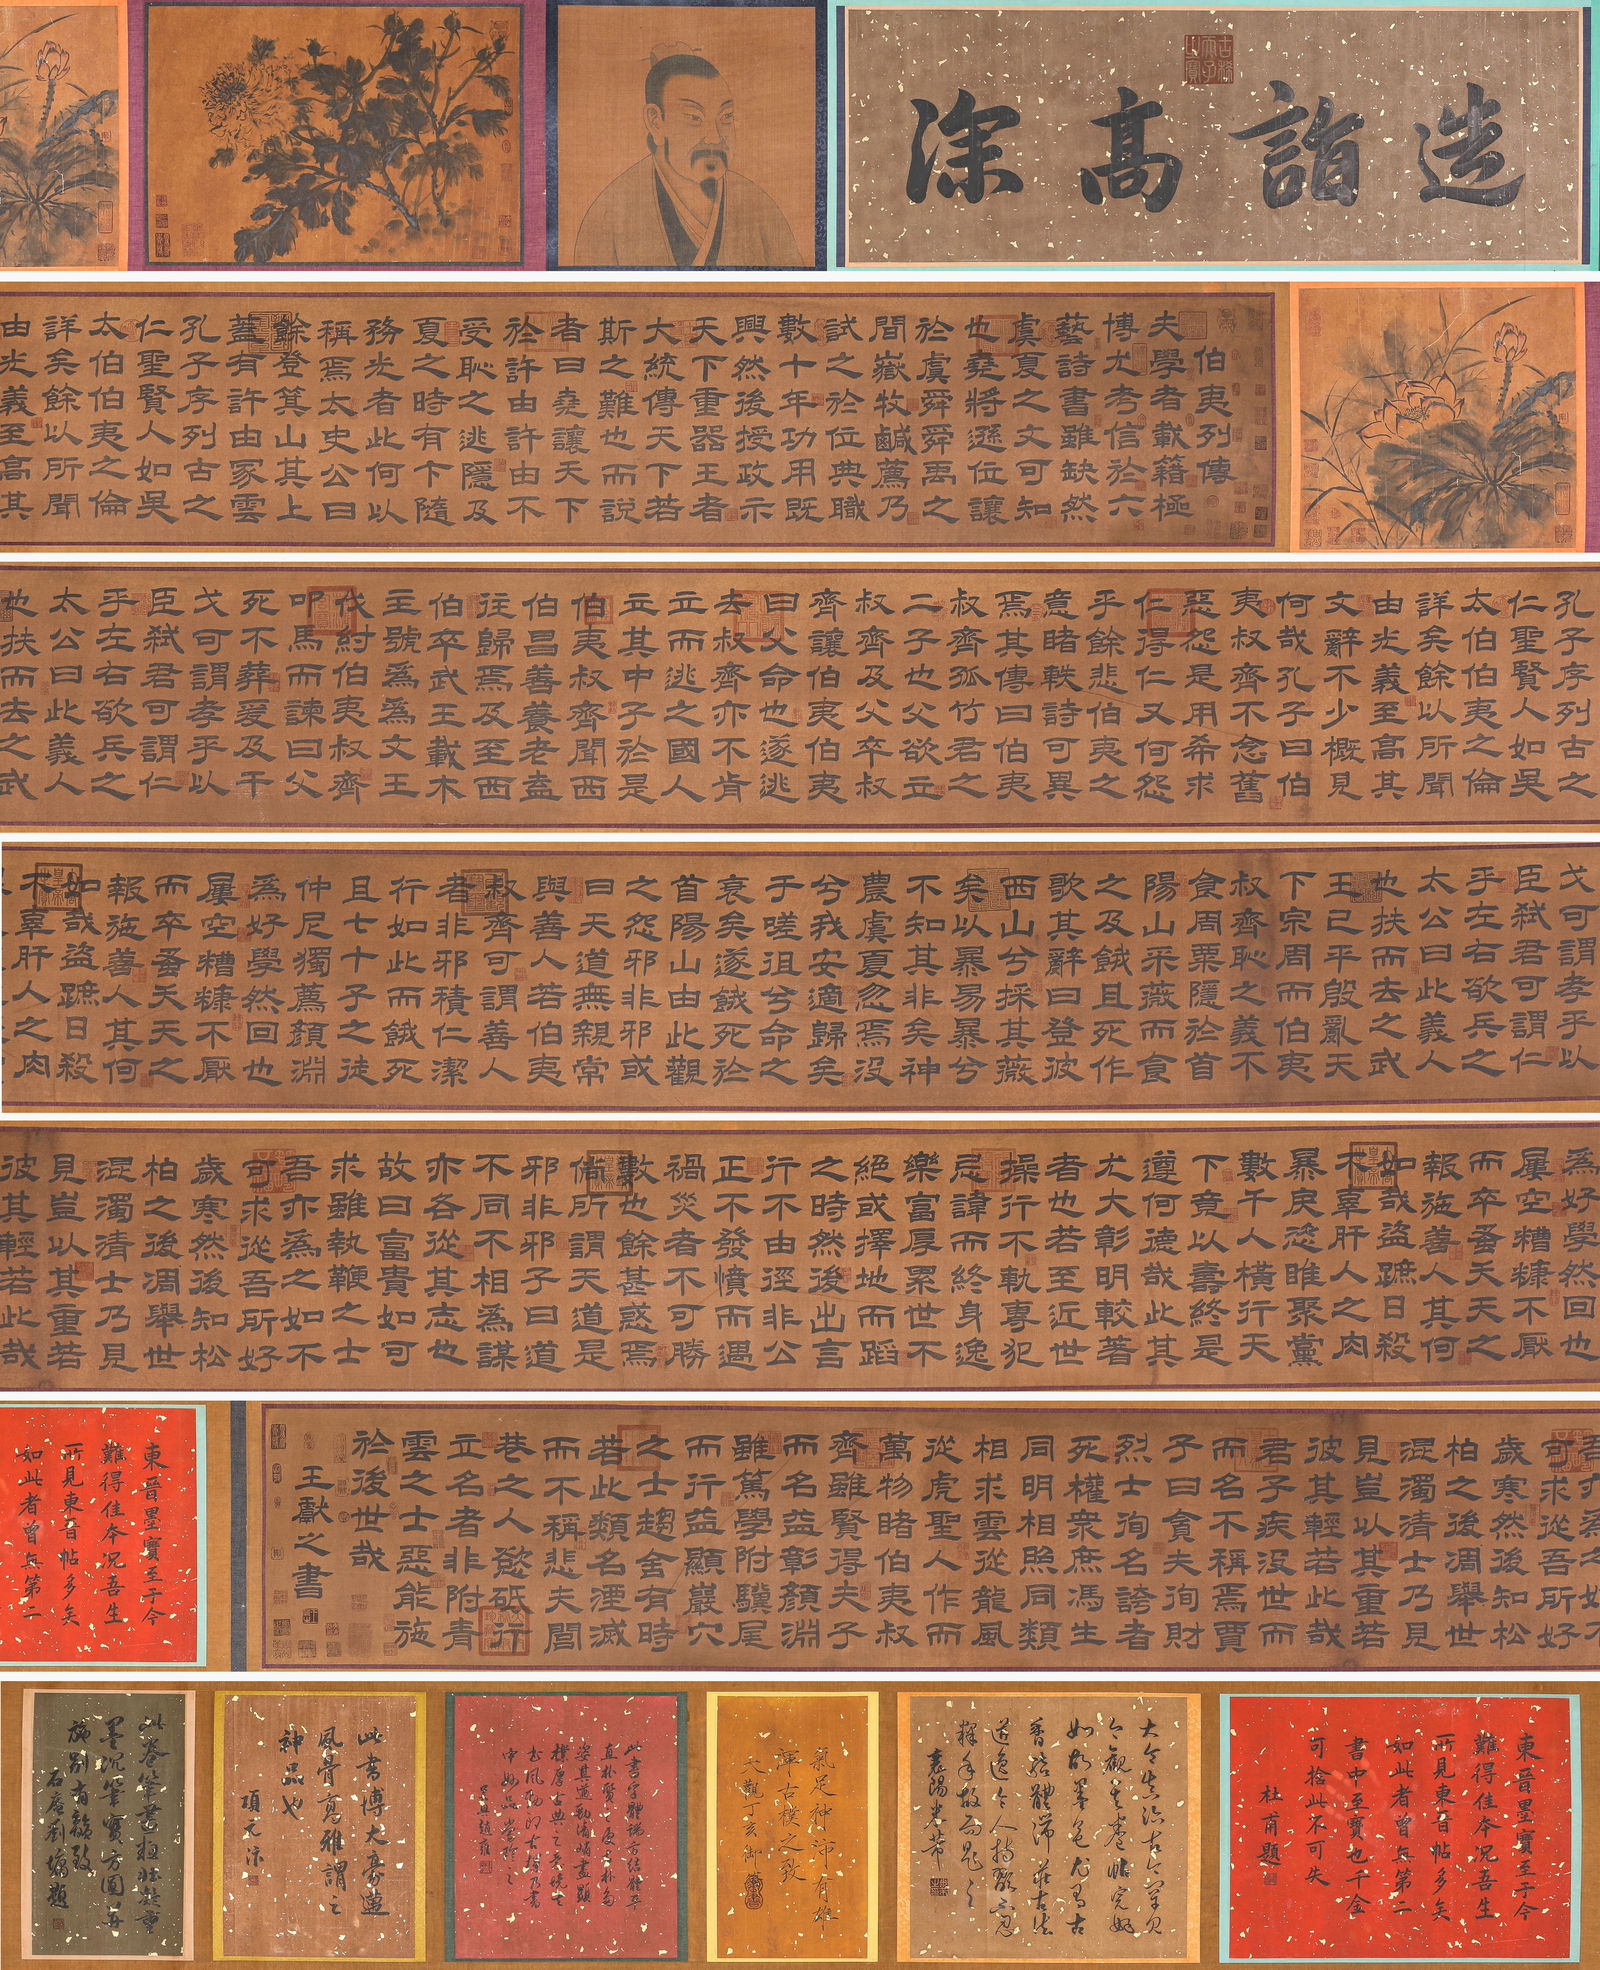 造詣高深
伯夷列傳
夫學者載籍極
博尤考信於六
藝詩書雖缺然
虞夏之文可知
也堯將遜位讓
於虞舜舜禹之
間嶽牧鹹薦乃
試之於位典職
數十年功用既
興然後授政示
天下重器王者
大統傳天下若
斯之難也而說
者曰堯讓天下
於許由許由不
受恥之逃隱及
夏之時有卞隨
務光者此何以
稱焉太史公曰
餘登箕山其上
蓋有許由冢雲
孔子序列古之
仁聖賢人如吳
太伯伯夷之倫
詳矣餘以所聞
由光義至高其
孔子序列古之
仁聖賢人如吳
太伯伯夷之倫
詳矣餘以所聞
由光義至高其
文辭不少概見
何哉孔子曰伯
夷叔齊不念舊
惡怨是用希求
仁得仁又何怨
乎餘悲伯夷之
意睹軼詩可異
焉其傳曰伯夷
叔齊孤竹君之
二子也父欲立
叔齊及父卒叔
齊讓伯夷伯夷
曰父命也遂逃
去叔齊亦不肯
立而逃之國人
立其中子於是
伯夷叔齊聞西
伯昌善養老盍
往歸焉及至西
伯卒武王載木
主號為文王
伐紂伯夷叔齊
叩馬而諫曰父
死不葬爰及干
戈可謂孝乎以
臣弒君可謂仁
乎左右欲兵之
太公曰此義人
也扶而去之武
戈可謂孝乎以
臣弒君可謂仁
乎左右欲兵之
太公曰此義人
也扶而去之武
王已平殷亂天
下宗周而伯夷
叔齊恥之義不
食周粟隱於首
陽山采薇而食
之及餓且死作
歌其辭曰登彼
西山兮採其薇
矣以暴易暴兮
不知其非矣神
農虞夏忽焉沒
兮我安適歸矣
于嗟徂兮命之
衰矣遂餓死於
首陽山由此觀
之怨邪非邪或
曰天道無親常
與善人若伯夷
叔齊可謂善人
者非邪積仁潔
行如此而餓死
且七十子之徒
仲尼獨薦顏淵
為好學然回也
屢空糟糠不厭
而卒蚤夭天之
報施善人其何
如哉盜蹠日殺
不辜肝人之肉
為好學然回也
屢空糟糠不厭
而卒蚤夭天之
報施善人其何
如哉盜蹠日殺
不辜肝人之肉
暴戾恣睢聚黨
數千人橫行天
下竟以壽終是
遵何德哉此其
尤大彰明較著
者也若至近世
操行不軌專犯
忌諱而終身逸
樂富厚累世不
絕或擇地而蹈
之時然後出言
行不由徑非公
正不發憤而遇
禍災者不可勝
數也餘甚惑焉
倘所謂天道是
邪非邪子曰道
不同不相為謀
亦各從其志也
故曰富貴如可
求雖執鞭之士
吾亦為之如不
可求從吾所好
歲寒然後知松
柏之後凋舉世
混濁清士乃見
見豈以其重若
彼其輕若此哉
吾亦為之如不
可求從吾所好
歲寒然後知松
柏之後凋舉世
混濁清士乃見
見豈以其重若
彼其輕若此哉
君子疾沒世而
而名不稱焉賈
子曰貪夫徇財
烈士洵名誇者
死權眾庶馮生
同明相照同類
相求雲從龍風
從虎聖人作而
萬物睹伯夷叔
齊雖賢得夫子
而名益彰顏淵
雖篤學附驥尾
而行益顯巖穴
之士趨舍有時
若此類名湮滅
而不稱悲夫閭
巷之人慾砥行
立名者非附青
雲之士惡能施
於後世哉
王獻之書
東晉墨寶至于今
難得佳本況吾生
所見東晉帖多矣
如此者曾無第二
東晉墨寶至于今
難得佳本況吾生
所見東晉帖多矣
如此者曾無第二
書中至寶也千金
可捨此不可失
杜甫題
大令真跡古今罕見
今觀其卷帖完好
如故墨色尤有古
香結體沛莊古法
遒逸令人持玩不忍
釋手故為題之
襄陽米芾
氣足神沛有雄
渾古樸之致
大觀丁亥御筆
此書字體端方結體平
此書博大豪邁
風骨高雅謂之
神品也
項元汴
此卷筆畫粗壯凝重
墨沉筆實方圓并
施別有韻致
石庵劉墉題